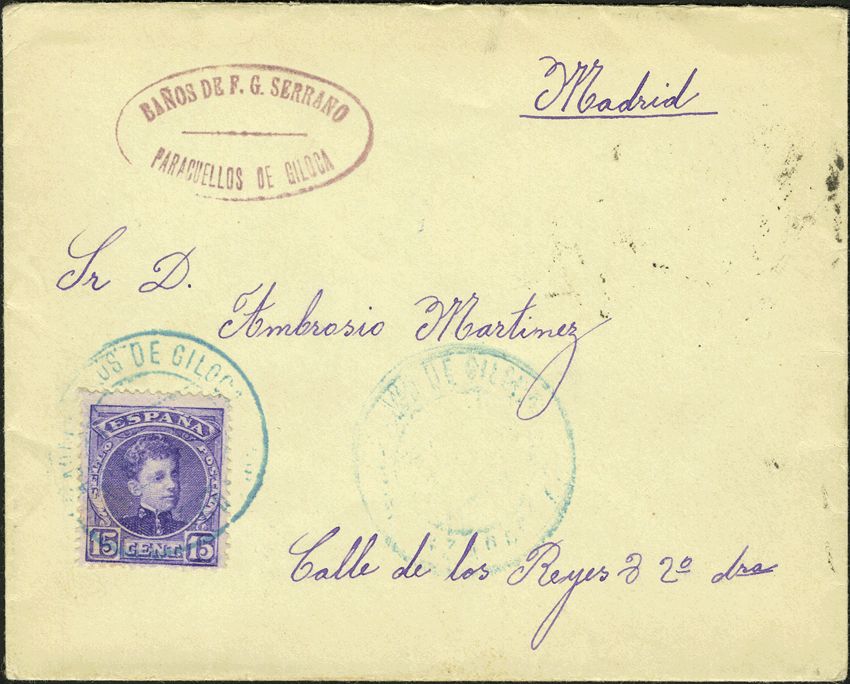 BAÑOS DE F. G. SERRANO
PARACUELLOS DE GILOCA
Madrid
Sr D.
Ambrosio Martinez
DE GILOCA
DE GILOCA
ESPAÑA
SELLO POSTAL
15 CENT 15
Calle de los Reyes 2º dra